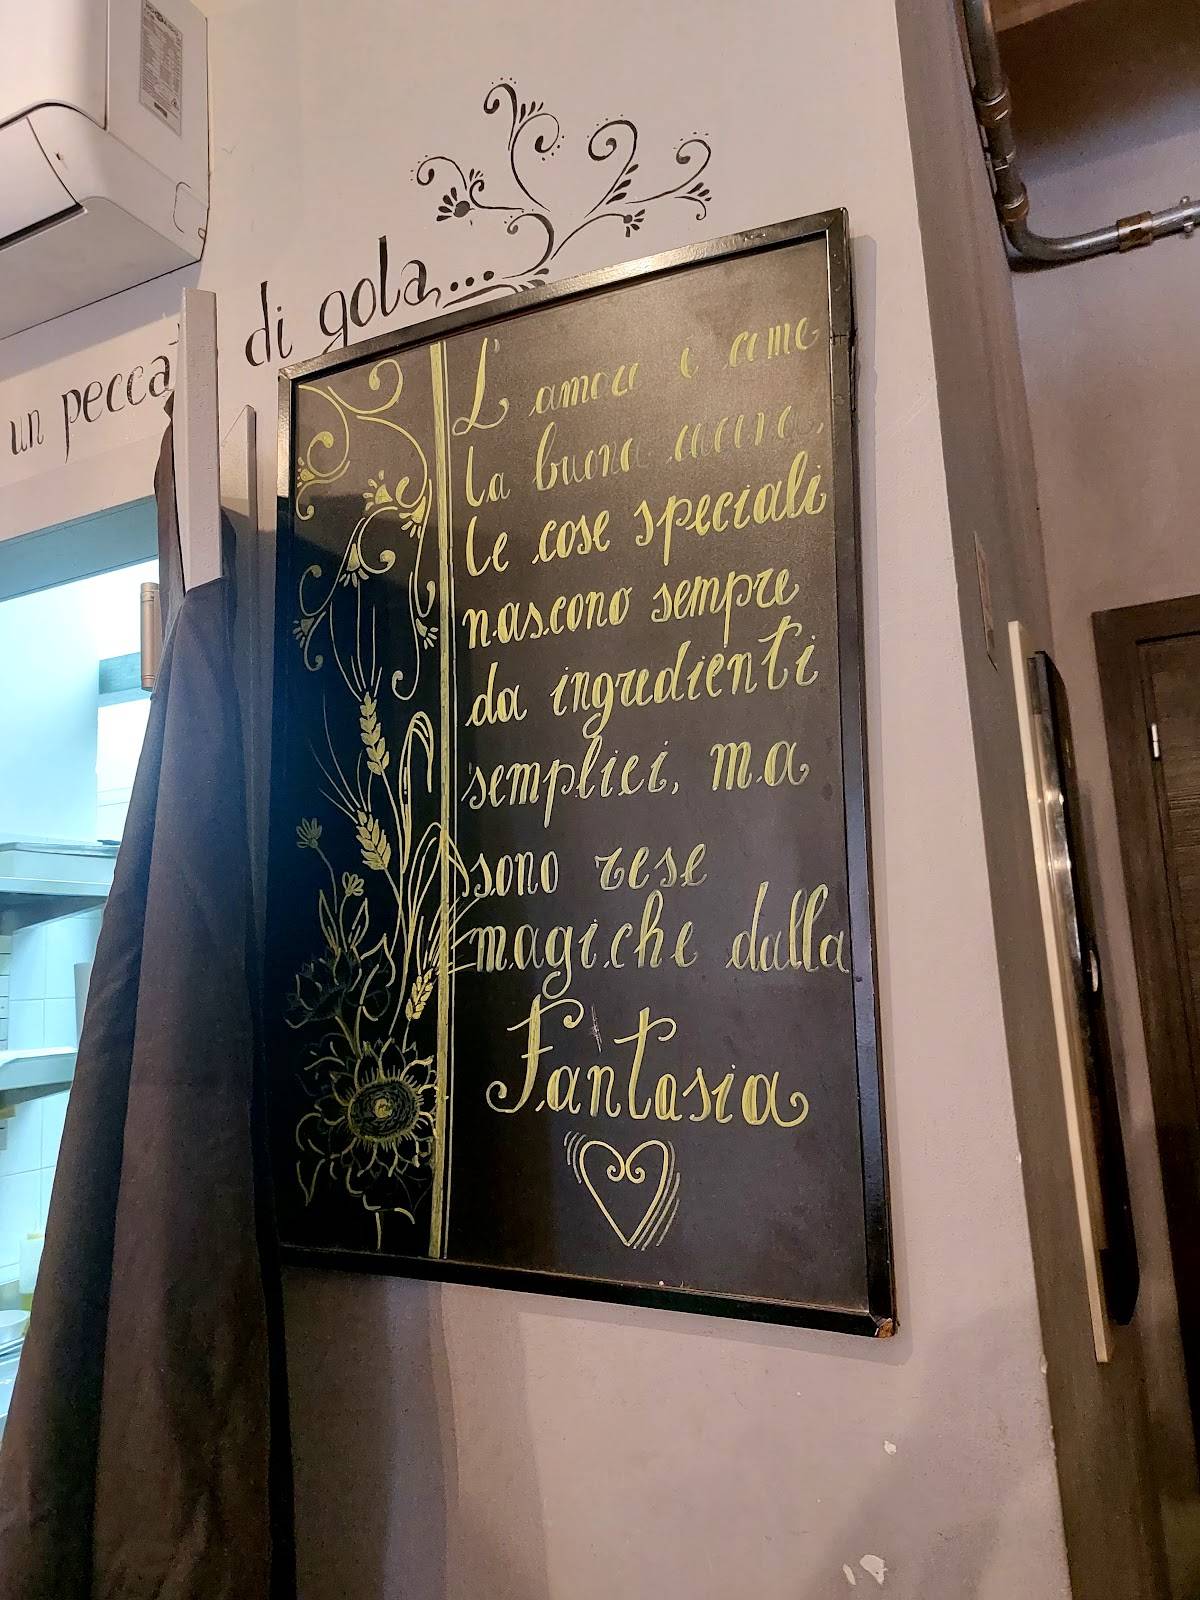 un pecca di gola...
L'amore è come
la buona cucina,
le cose speciali
nascono sempre
da ingredienti
semplici, ma
sono rese
magiche dalla
Fantasia